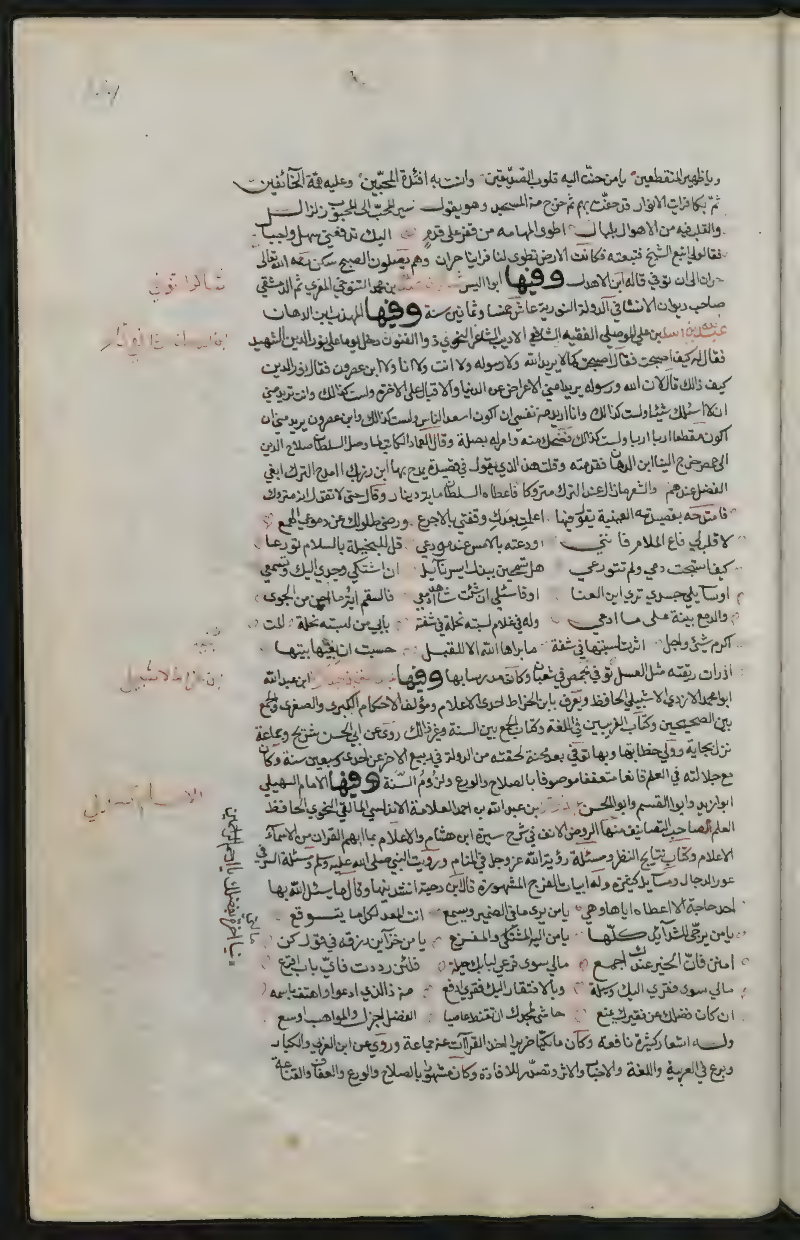 وياظهير المنقطعين يامن حنت اليه قلوب الصديقين وانست به افئدة المحبين وعليه همة الخائفين
ثم بكا فرايت الانوار قد حفت بهم ثم خرج من المسجد وهو يقول سير المحب الى المحبوب زلزال
والقلب فيه من الاهوال بلبال اطوى المهامه من قفر على قدم اليك تدفعني سهل واجبال
فقال لي اتبع الشيخ فتبعته فكانت الارض تطوى لنا فراينا حران وهم يصلون الصبح سكن رحمه الله تعالى
حران الى ان توفي قاله ابن الاهدل وفيها ابو اليسر شاكر بن عبد الله بن محمد التنوخي المعري ثم الدمشقي
صاحب ديوان الانشا في الدولة النورية عاش خمسا وثمانين سنة وفيها المهذب ابن الدهان
عبد الله بن اسعد بن علي الموصلي الفقيه الشافعي الاديب الشاعر النحوي ذو الفنون دخل يوما على نور الدين الشهيد
فقال له كيف اصبحت فقال اصبحت كما لا يريد الله ولا رسوله ولا انت ولا انا ولا ابن عصرون فقال نور الدين
كيف ذلك قال لان الله ورسوله يريد مني الاعراض عن الدنيا والاقبال على الاخرة ولست كذلك وانت تريد مني
ان لا اسئلك شيئا ولست كذلك وانا اريد من نفسي ان اكون اسعد الناس ولست كذلك وابن عصرون يريد مني ان
اكون مقطعا اربا اربا ولست كذلك فضحك منه وامر له بصلة وقال العماد الكاتب لما وصل السلطان صلاح الدين
الى حمص خرج الينا ابن الدهان فقدمته وقلت هذا الذي يقول في قصيدة يمدح بها ابن رزيك ا امدح الترك ابغي
الفضل عندهم والشعر مازال عند الترك متروكا فاعطاه السلطان ماية دينار وقال حتى لا تقول انه متروك
فامتدحه بقصيدته العينية يقول فيها اعلمت بعدك وقفتي بالاجرع ورضى طلولك عن دموعي الهمع
لا قلب لي فاع الملام فانني اودعته بالامس عند مودعي قل للبخيلة بالسلام تورعا
كيف استبحت دمي ولم تتورعي هل تسمحين ببذل ايسر نايل ان اشتكي وجدي اليك وتسمعي
اوسايلي جسدي تري اين العنا اوفاسئلي ان شئت شاهد ادمعي فالسقم اية ما اجن من الجوى
والدمع بينة على ما ادعي وله في غلام لسبته نحلة في شفته بابي من لسبته نحلة المت
اكرم شئ واجل اثرت لسبتها في شفة مابراها الله الا للقبل حسبت ان بفيها بيتها
اذ رات ريقته مثل العسل توفي بحمص في شعبان وكان مدرسا بها وفيها عبد الحق ابن عبد الله
ابو محمد الازدي الاشبيلي الحافظ ويعرف بابن الخراط احد الاعلام ومؤلف الاحكام الكبرى والصغرى والجمع
بين الصحيحين وكتاب الغريبين في اللغة وكتاب الجمع بين الستة وغير ذلك روى عن ابي الحسن شريح وجماعة
نزل بجاية وولي خطابتها وبها توفي بعد محنة لحقته من الدولة في ربيع الاخر عن احدى وسبعين سنة وكان
مع جلالته في العلم قانعا متعففا موصوفا بالصلاح والورع ولزوم السنة وفيها الامام السهيلي
ابو زيد وابو القسم وابو الحسن بن عبد الله ب احمد العلامة الاندلسي المالقي النحوي الحافظ
العلم الصاحب التصانيف منها الروض الانف في شرح سيرة ابن هشام والاعلام بما ابهم القران من الاسماء
الاعلام وكتاب نتايج النظر ومسئلة رؤية الله عز وجل في المنام ورؤيت النبي صلى الله عليه وسلم ومسئلة السر في
عور الدجال ومسايل كثيرة وله ابيات بالفرج المشهورة قال ابن دحية انشدنيها وقال ما سئل الله بها
احد حاجة الا اعطاه اياها وهي يامن يرى ما في الضمير ويسمع انت المعد لكل ما يتوقع
يامن يرجى للشدايد كلها يامن اليه المشتكى والمفزع يامن خزاين رزقه في قول كن
امنن فان الخير عندك اجمع مالي سوى قرعي لبابك حيلة فلئن رددت فاي باب اقرع
مالي سوى فقري اليك وسيلة وبالافتقار اليك فقري ادفع من ذا الذي ادعو واهتف باسمه
ان كان فضلك عن فقيرك يمنع حاشى لجودك ان تقنط عاصيا الفضل اجزل والمواهب اوسع
وله اشعار كثيرة نافعة وكان مالكيا ضريرا اخذ القراات عن جماعة وروى عن ابن العربي والكبار
وبرع في العربية واللغة والاخبار والاثر وتصدر للافادة وكان مشهورا بالصلاح والورع والعفاف والقناعة